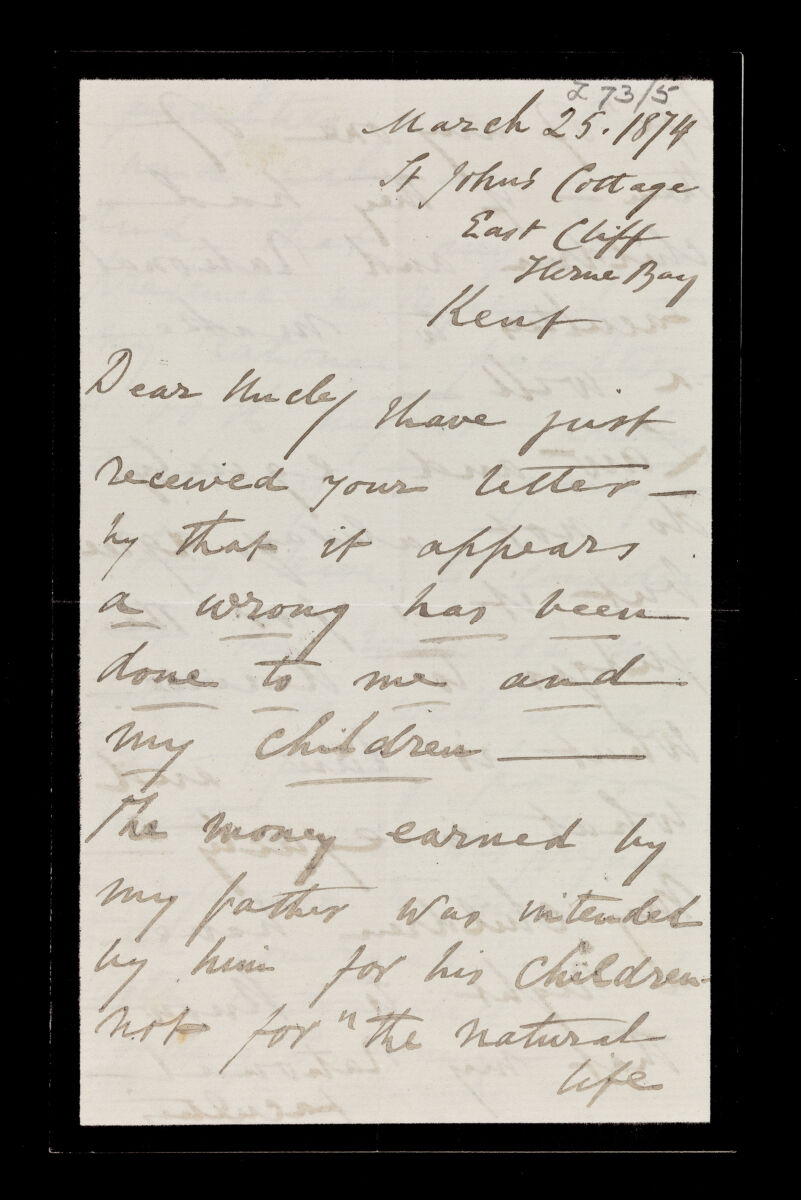 Z 73/5
March 25. 1874
St John's Cottage
East Cliff
Herne Bay
Kent
Dear Uncle, I have just
received your letter —
by that it appears
a wrong has been
done to me and
my children ——
The money earned by
my father was intended
by him for his children
not for "the natural
life